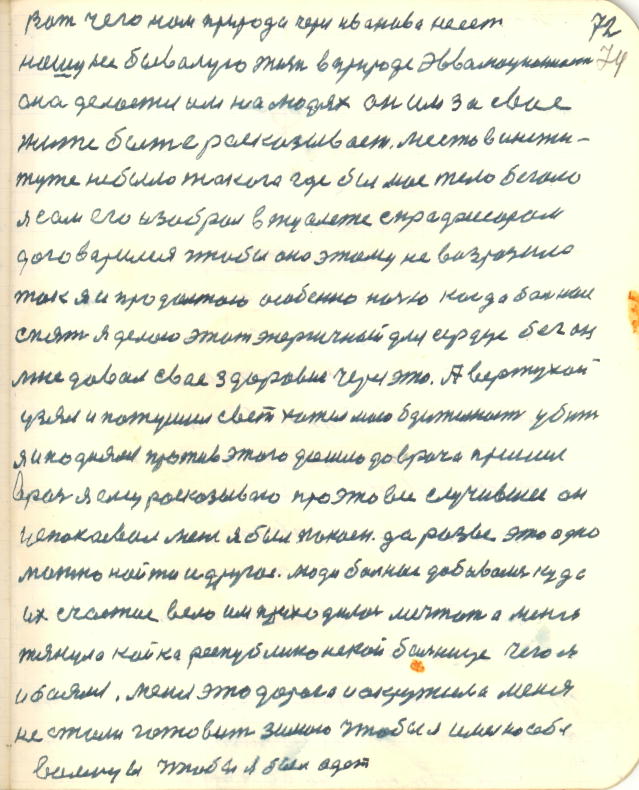 72
74
Вот чего нам природа чери иванава несет
нашу не бывалую жизн в природе Эввалюционност
она делаетсия им на людях он им за свае
жите быте расказывает. Места в инсти-
туте небыло такога где бы мае тело бегало
я сам его изабрал в туалете с прафэсорам
договарился чтобы оно этому не возразило
так я и продолжаю особенно ночю когда болные
спят я делаю этот энергичный для сердце бег он
мне давал свае здоровие чери это. А вертухой
узял и потушил свет хотел маю бдителност убит
я и поднял против этого дошло до врача пришел
врач я ему расказываю про это все случившее он
успокаевал меня я был покоен. да разве это одно
можно найти и другое. люди болные добывалися куда
их счастие вело им приходилос мечтат а меня
тянула койка республиконской болнице чего я
и боялся. меня это дорога и окружила меня
не стали готовит зимою чтобы я имел на себя
чтобы я был одет